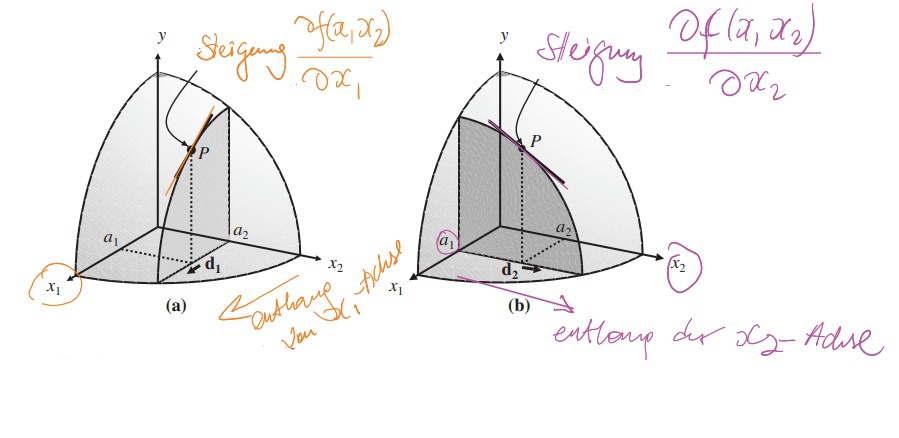 y
Steigung ∂f(x₁x₂)
∂x₁
P
a₁
a₂
d₁
x₁
x₂
(a)
entlang
von x₁-Achse
y
Steigung ∂f(x₁x₂)
∂x₂
P
a₁
a₂
d₂
x₁
x₂
(b)
entlang der x₂-Achse